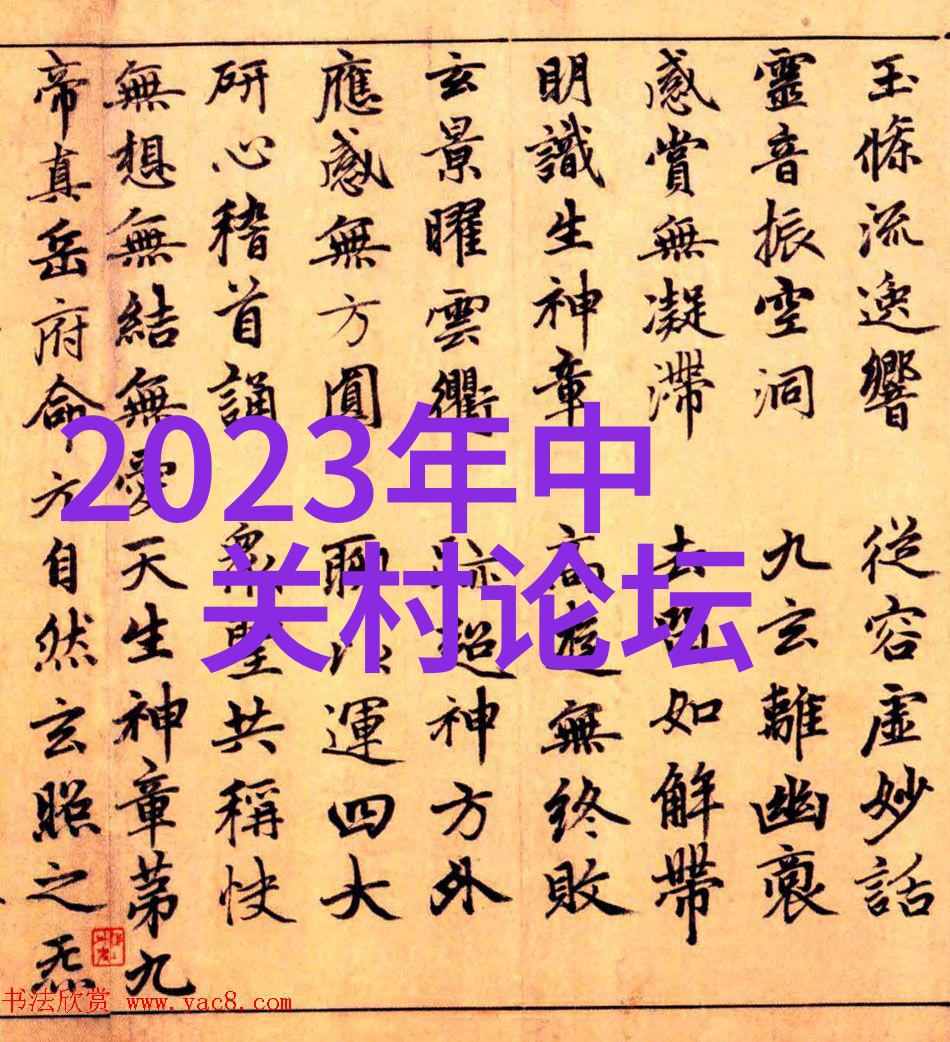 玉條流逸響 從容虛妙話
靈音振空洞 九玄離幽裔
感賞無凝滯 去留如解帶
明識生神章 高遊無終敗
玄景曜雲衢 跡超神方外
應感無方圓 聊以運四大
研心稽首誦 衆聖共稱快
無想無結無愛天生神章第九
帝真岳府命方自然玄照之炁
2023年中
关村论坛
书法欣赏 www.yac8.com